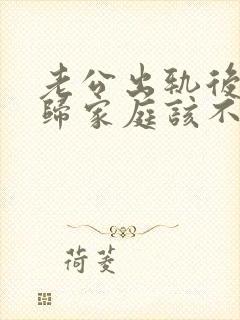 老公出軌後
歸家庭該不
荷菱